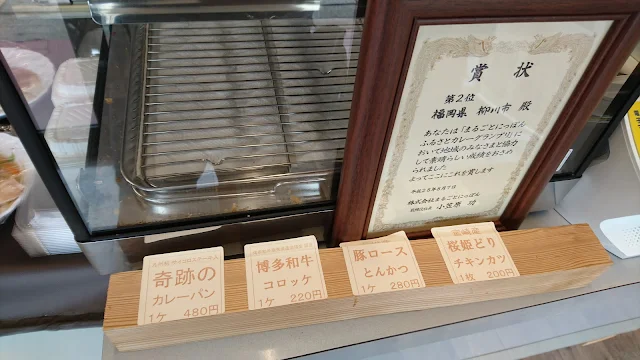 賞状
第2位
福岡県 柳川市 殿
あなたは「まるごとにっぽん
ふるさとカレーグランプリ」に
おいて地域のみなさまと協力
して素晴らしい成績をおさめ
られました
よってここにこれを賞します
株式会社まるごとにっぽん
小笠原 功
奇跡の
カレーパン
1ケ 480円
博多和牛
コロッケ
1ケ 220円
豚ロース
とんかつ
1ケ 280円
宮崎産
桜姫どり
チキンカツ
1枚 200円